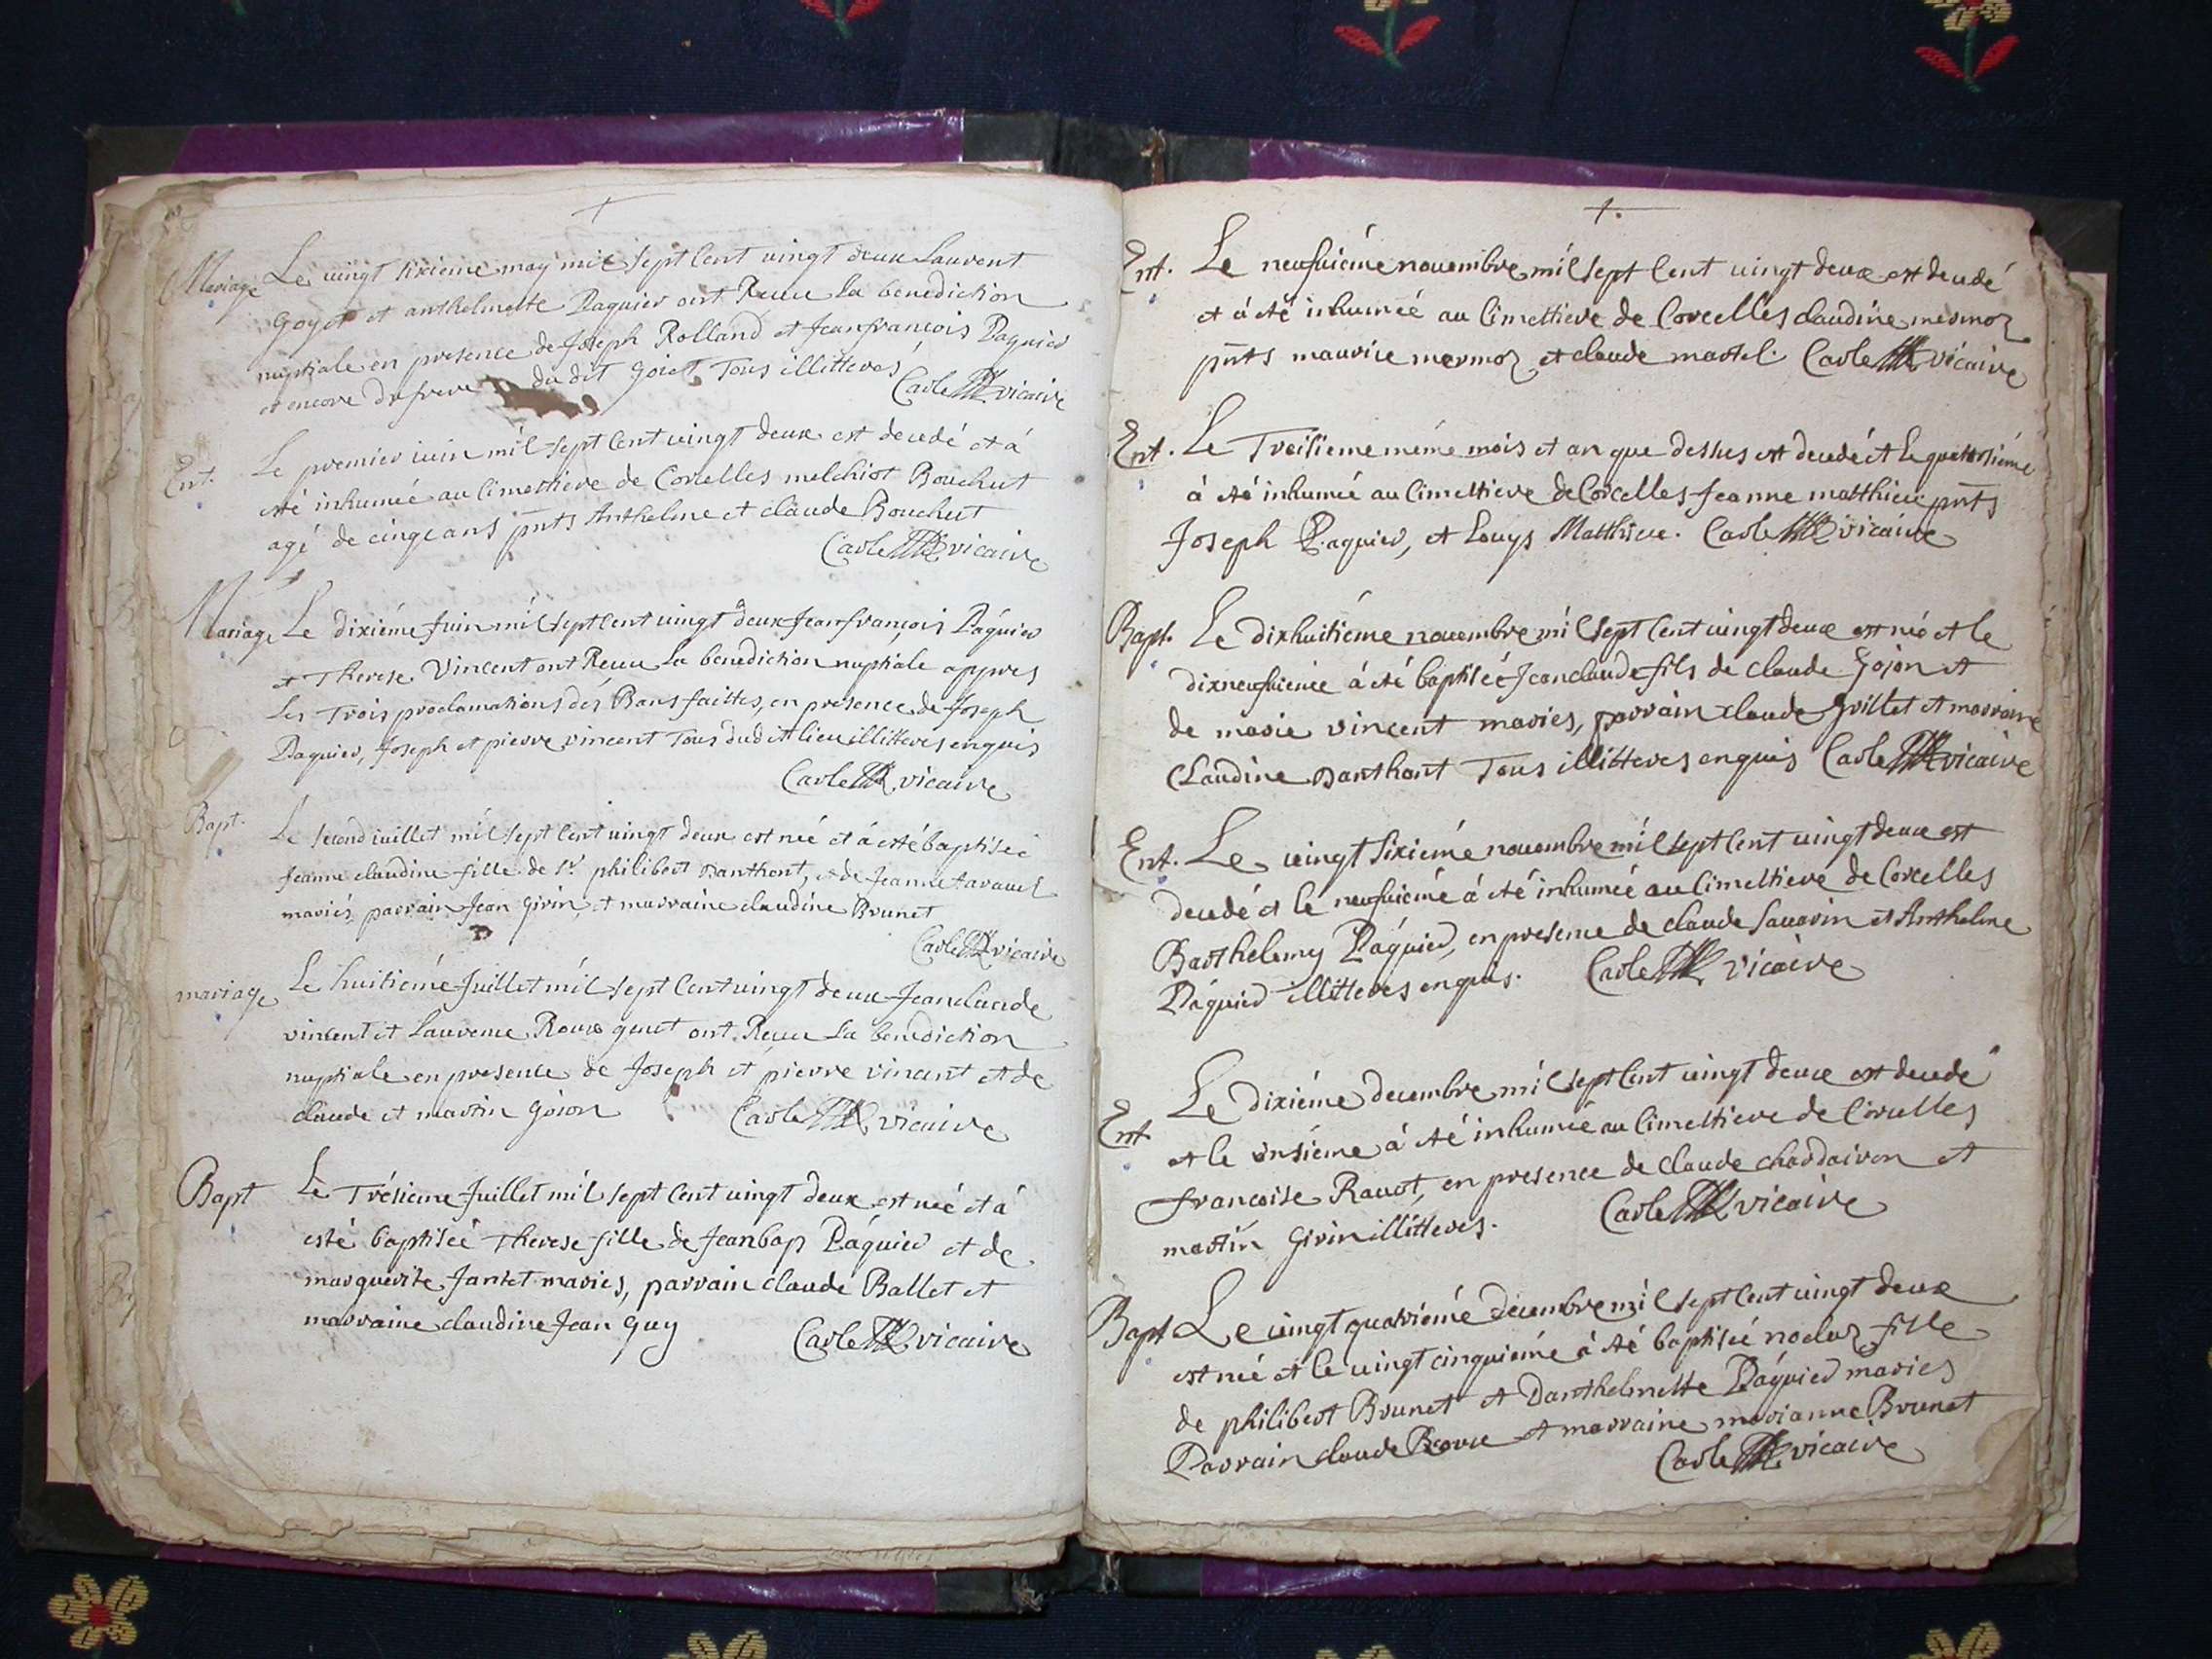 Mariage Le vingt sixieme may mil sept Cent vingt deux Laurent
Goyet et anthelmette Paquier ont Receu La benediction
nuptiale en presence de Joseph Rolland et Jeanfrancois Paquier
et encore du frere du dit goiet Tous illitteres
Carle vicaire
Ent. Le premier iuin mil sept Cent vingt deux est decedé et á
eté inhumeé au Cimettiere de Corcelles melchiot Bouchut
agé de cinqc ans pnts Anthelme et claude Bouchut
Carle vicaire
Mariage Le dixiéme Juin mil sept Cent vingt deux Jeanfrançois Páquier
et Therese Vincent ont Receu La benediction nuptiale appres
Les Trois proclamations des Bans faittes, en presence de Joseph
Paquier, Joseph et pierre vincent Tous dudit lieu illitteres enquis
Carle vicaire
Bapt. Le second iuillet mil sept Cent vingt deux est neé et á esté baptiseé
Jeanne claudine fille de Sr philibert Danthont, et de Jeanne
mariés parrain Jean Girin, et marraine claudine Brunet
Carle vicaire
mariage Le huitiéme Juillet mil sept Cent vingt deux Jeanclaude
vincent et Laurence Roux genet ont Receu La benediction
nuptiale en presence de Joseph et pierre vincent et de
claude et martin Goion Carle vicaire
Bapt Le Trésieme Juillet mil sept Cent vingt deux est neé et á
esté baptiseé Therese fille de Jeanbap Páquier et de
marguerite Jantet mariés, parrain claude Ballet et
marraine claudine Jean Guy Carle vicaire
Ent. Le neufuiéme nouembre mil sept Cent vingt deux est decedé
et á eté inhumeé au Cimettiere de Corcelles claudine mermoz
pnts maurice mermoz et claude martel. Carle vicaire
Ent. Le Treisieme méme mois et an que dessus est decedé et le quattorsiéme
á eté inhumeé au Cimettiere de Corcelles Jeanne matthieu pnts
Joseph Paquier, et Louys Matthieu. Carle vicaire
Bapt. Le dixhuitiéme nouembre mil sept Cent vingt deux est né et le
dixneufuieme á eté baptiseé Jeanclaude fils de claude Gojon et
de marie vincent maries, parrain claude Grillet et marraine
Claudine Danthont Tous illitteres enquis Carle vicaire
Ent. Le vingt sixiéme nouembre mil sept Cent vingt deux est
decedé et le neufuiéme á eté inhumeé au Cimettiere de Corcelles
Barthelemy Páquier, en presence de claude Sauarin et Anthelme
Páquier illitteres enquis. Carle vicaire
Le dixiéme decembre mil sept Cent vingt deux est decedé
Ent. et le onsiéme á eté inhumeé au Cimettiere de Corcelles
francoise Rauot, en presence de claude chardairon et
martin Girin illitteres. Carle vicaire
Bapt Le vingt quatriéme decembre mil sept Cent vingt deux
est neé et le vingt cinquiéme á eté baptiseé noelaz fille
de philibert Brunet et Danthelmette Páquier mariés
Parrain claude et marraine marianne Brunet
Carle vicaire